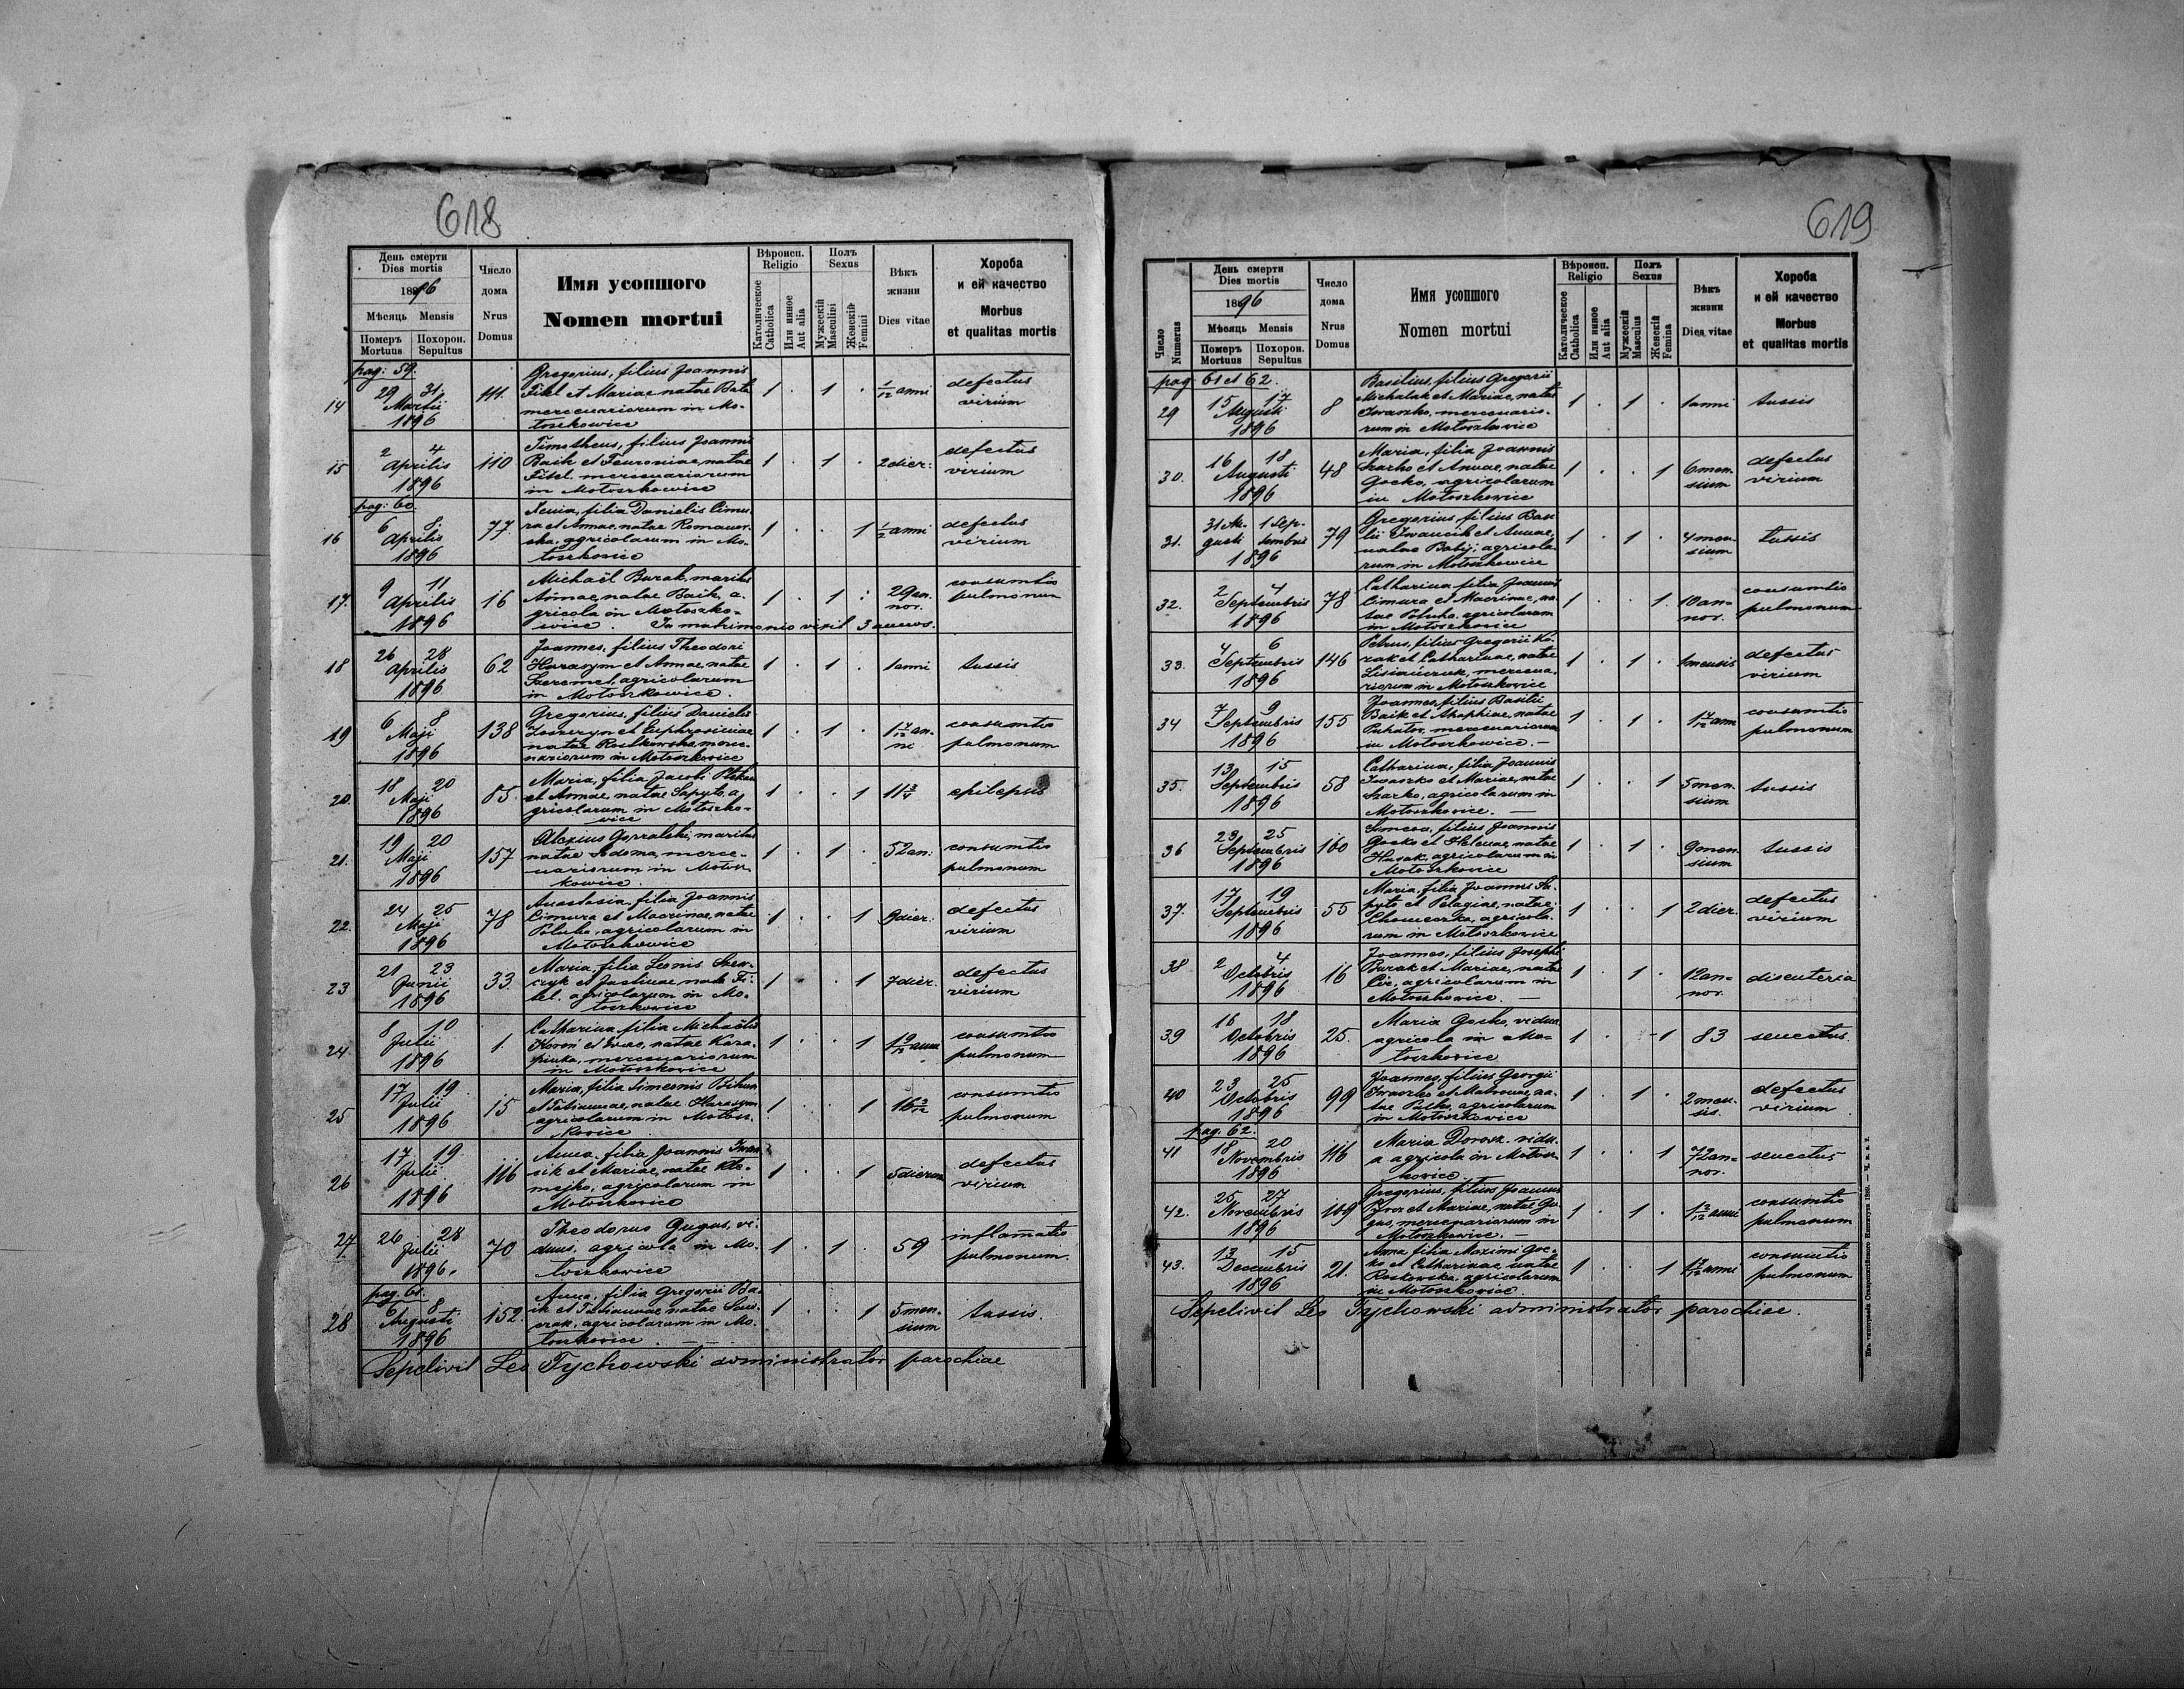 618
День смерти
Dies mortis
1896
Мѣсяць Mensis
Померъ Mortuus
Похорон. Sepultus
Число дома
Nrus Domus
Имя усопшого
Nomen mortui
Вѣроисп. Religio
Католическое Catholica
Или иное Aut alia
Полъ Sexus
Мужескій Masculini
Женскій Femini
Вѣкъ жизни
Dies vitae
Хороба
и ей качество
Morbus
et qualitas mortis
pag: 59.
14 29 31 Martii 1896 111. Gregorius, filius Joannis
Fitel et Mariae natae Bata
mercenariorum in Mo-
toszkowice
1 . 1 . 1/12 anni defectus virium
15 2 4 Aprilis 1896 110 Timotheus, filius Joannis
Baik et Feuroniae, natae
Fitel. mercenariorum
in Motoszkowice
1 . 1 . 2 dier: defectus virium
pag: 60.
16 6 8 Aprilis 1896 77. Xenia, filia Danielis Cimu-
ra et Annae, natae Romanow-
ska, agricolarum in Mo-
toszkowice
1 . . 1 1/2 anni defectus virium
17. 9 11 Aprilis 1896 16 Michaël Burak, maritus
Annae, natae Baik, a-
gricola in Motoszko-
wice. In matrimonio vixit 3 annos.
1 . 1 . 29 an-
nor. consumtio pulmonum
18 26 28 Aprilis 1896 62 Joannes, filius Theodori
Harasym et Annae, natae
Szeremet, agricolarum
in Motoszkowice.
1 . 1 . 1 anni tussis
19 6 8 Maji 1896 138 Gregorius, filius Danielis
et Euphrosinae
natae merce-
nariorum in Motoszkowice
1 . 1 . an-
ni consumtio pulmonum
20. 18 20 Maji 1896 85. Maria, filia Jacobi
et Annae, natae Sapyto, a-
gricolarum in Motoszko-
wice
1 . . 1 11 3/4 epilepsis
21. 19 20 Maji 1896 157 Alexius maritus
natae Sodoma, merce-
nariorum in Motosz-
kowice.
1 . 1 . 52 an: consumtio pulmonum
22. 24 25 Maji 1896 78 Anastasia, filia Joannis
Cimura et Macrinae, natae
Pituha, agricolarum in
Motoszkowice
1 . . 1 9 dier: defectus virium
23 21 23 Junii 1896 33. Maria, filia Leonis Szew-
czyk et Justinae, natae Fi-
tel. agricolarum in Mo-
toszkowice
1 . . 1 7 dier. defectus virium
24. 8 10 Julii 1896 1. Catharina, filia Michaëlis
et Evae, natae Kara-
pinka, mercenariorum
in Motoszkowice
1 . . 1 consumtio pulmonum
25 17 19 Julii 1896 15 Maria, filia Simeonis
et Tatiannae, natae Harasym
agricolarum in Motosz-
kowice
1 . . 1 consumtio pulmonum
26 17 19 Julii 1896 116 Anna, filia Joannis Iwan-
sik et Mariae, natae Kło-
mejko, agricolarum in
Motoszkowice
1 . . 1 5 dierum defectus virium
27. 26 28 Julii 1896. 70 Theodorus Gugus, vi-
duus, agricola in Mo-
toszkowice
1 . 1 . 59 inflam̄atio pulmonum.
pag. 61.
28 6 8 Augusti 1896 152. Anna, filia Gregorii Ba-
ik et Tatiannae, natae
agricolarum in Mo-
toszkowice.
1 . . 1 5 men-
sium tussis.
Sepelivit Leo Tychowski administrator parochiae
619
Число Numerus
День смерти
Dies mortis
1896
Мѣсяць Mensis
Померъ Mortuus
Похорон. Sepultus
Число дома
Nrus Domus
Имя усопшого
Nomen mortui
Вѣроисп. Religio
Католическое Catholica
Или иное Aut alia
Полъ Sexus
Мужескій Masculius
Женскій Femina
Вѣкъ жизни
Dies vitae
Хороба
и ей качество
Morbus
et qualitas mortis
pag 61 et 62.
29 15 17 Augusti 1896 8 Basilius, filius Gregorii
Michalak et Mariae, natae
Iwaszko, mercenario-
rum in Motoszkowice
1 . 1 . 1 anni tussis
30. 16 18 Augusti 1896 48 Maria, filia Joannis
Szarko et Annae, natae
Gocko, agricolarum
in Motoszkowice
1 . . 1 6 men-
sium defectus virium
31. 31 Au- 1 Sep-
gusti tembris
1896 79 Gregorius filius Basi-
lii Iwancik et Annae,
natae Babij, agricola-
rum in Motoszkowice
1 . 1 . 4 men-
sium tussis
32. 2 4 Septembris 1896 78 Catharina filia Joannis
Cimura et Macrinae, na-
tae Pituha, agricolarum
in Motoszkowice
1 . . 1 10 an-
nor. consumtio pulmonum
33. 4 6 Septembris 1896 146 Petrus, filius Gregorii Ko-
zak et Catharinae, natae
mercena-
riorum in Motoszkowice
1 . 1 . 1 mensis defectus virium
34 7 9 Septembris 1896 155 Joannes, filius Basilii
Baik et Agaphiae, natae
mercenariorum
in Motoszkowice.—
1 . 1 . consumtio pulmonum
35. 13 15 Septembris 1896 58 Catharina, filia Joannis
Iwaszko et Mariae, natae
Szarko, agricolarum in
Motoszkowice.
1 . . 1 5 men-
sium tussis
36 23 25 Septembris 1896 160 Simeon, filius Joannis
Gocko et Helenae, natae
Husak, agricolarum in
Motoszkowice
1 . 1 . 9 men-
sium tussis
37. 17 19 Septembris 1896 55 Maria, filia Joannis Sa-
pyto et Pelagiae, natae
agricola-
rum in Motoszkowice
1 . . 1 2 dier. defectus virium
38 2 4 Octobris 1896 16 Joannes, filius Josephi
Burak et Mariae, natae
agricolarum in
Motoszkowice.—
1 . 1 . 12 an-
nor. disenteria
39 16 18 Octobris 1896 25. Maria Gocko, vidua
agricola in Mo-
toszkowice
1 . . 1 83 senectus.
40 23 25 Octobris 1896 99 Joannes, filius Georgii
Iwaszko et Matronae, na-
tae agricolarum
in Motoszkowice
1 . 1 . 2 men-
sis. defectus virium
pag. 62.
41 18 20 Novembris 1896 116 Maria Dorosz. vidu-
a agricola in Motosz-
kowice.
1 . . 1 72 an-
nor. senectus
42. 25 27 Novembris 1896 109 Gregorius, filius Joannis
et Mariae, natae Gu-
gus, mercenariorum in
Motoszkowice.—
1 . 1 . anni consumtio pulmonum
43. 13 15 Decembris 1896 21. Anna, filia Maximi Goc-
ko et Catharinae, natae
Roskowska, agricolarum
in Motoszkowice
1 . . 1 anni consumtio pulmonum
Sepelivit Leo Tychowski administrator parochiae.